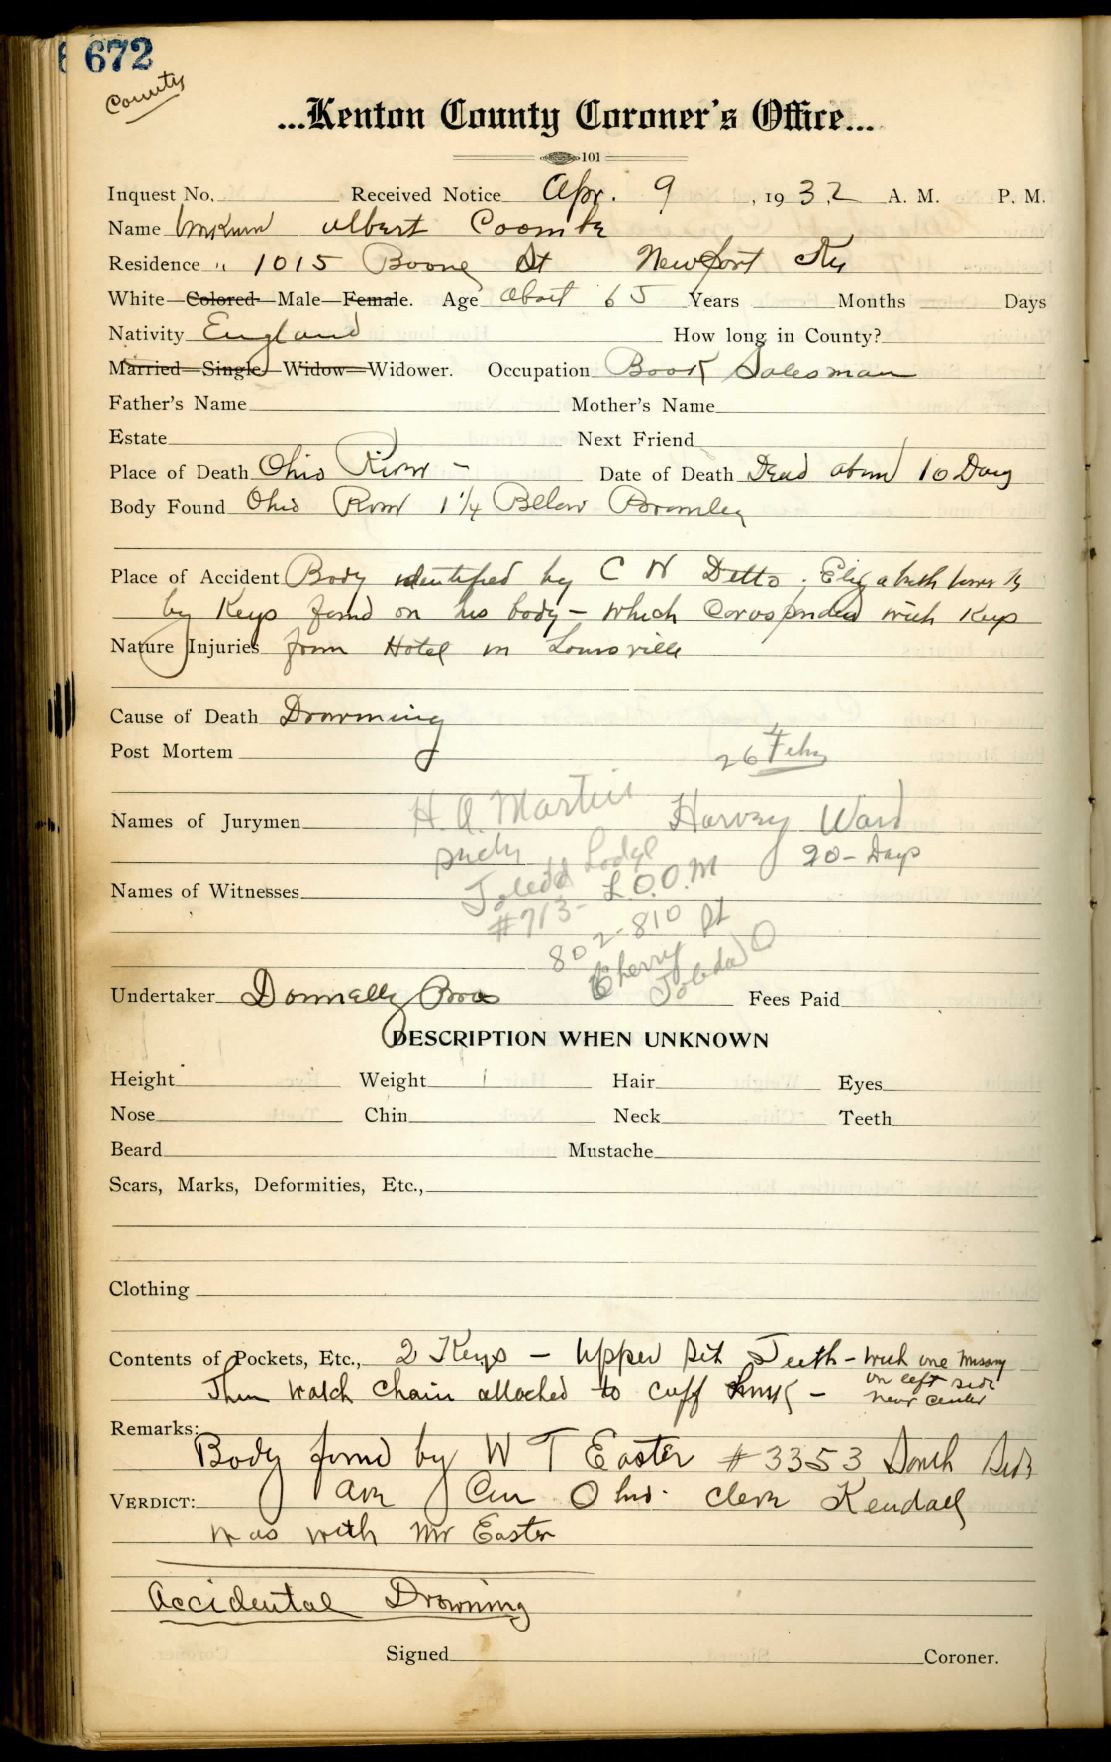 672
County
...Kenton County Coroner's Office...
101
Inquest No. Received Notice Apr. 9, 1932 A. M. P. M.
Name Albert Coombe
Residence " 1015 Boone St Newport Ky
White—Colored—Male—Female. Age about 65 Years Months Days
Nativity England How long in County?
Married—Single—Widow—Widower. Occupation Book Salesman
Father's Name Mother's Name
Estate Next Friend
Place of Death Ohio River - Date of Death Dead about 10 Days
Body Found Ohio River 1 1/4 Below Bromley
Place of Accident Body identified by C N Ditto. Elizabeth town Ky
by Keys found on his body - which Corosponded with Keys
Nature Injuries from Hotel in Louisville
Cause of Death Drowning
Post Mortem 26 Feby
Names of Jurymen H. A. Martin Harvey Ward
20 - Days
Toledo Lodge
Names of Witnesses #713 - L.O.O.M
802-810 St
Cherry
Toledo O
Undertaker Donnelly Bros Fees Paid
DESCRIPTION WHEN UNKNOWN
Height Weight Hair Eyes
Nose Chin Neck Teeth
Beard Mustache
Scars, Marks, Deformities, Etc.,
Clothing
Contents of Pockets, Etc., 2 Keys - Upper Set Teeth - with one missing
on left side
near center
watch chain attached to cuff -
Remarks:
Body found by W T Easter #3353 South Side
VERDICT: Ave Cin Ohio. Clem Kendall
was with Mr Easter
Accidental Drowning
Signed Coroner.